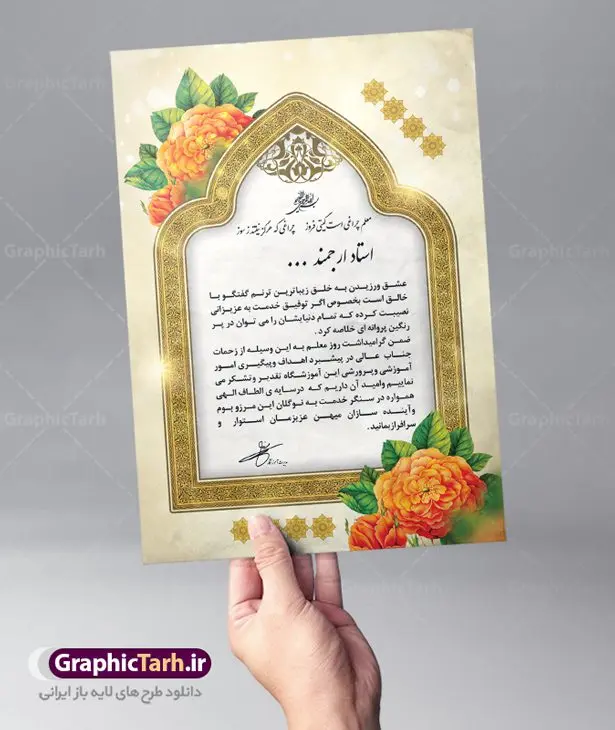 GraphicTarh
بسم الله الرحمن الرحیم
معلم چراغی است گیتی فروز چراغی که هرگز نیفتد ز سوز
استاد ارجمند ...
عشق ورزیدن به خلق زیباترین ترنم گفتگو با
خالق است بخصوص اگر توفیق خدمت به عزیزانی
نصیبت کرده که تمام دنیایشان را می توان در پر
رنگین پروانه ای خلاصه کرد.
ضمن گرامیداشت روز معلم به این وسیله از زحمات
جناب عالی در پیشبرد اهداف وپیگیری امور
آموزشی وپرورشی این آموزشگاه تقدیر و تشکر می
نماییم وامید آن داریم که درسایه ی الطاف الهی
همواره در سنگر خدمت به نوگلان این مرزو بوم
وآینده سازان میهن عزیزمان استوار و
سرافرازبمانید.
GraphicTarh.ir
دانلود طرح های لایه باز ایرانی